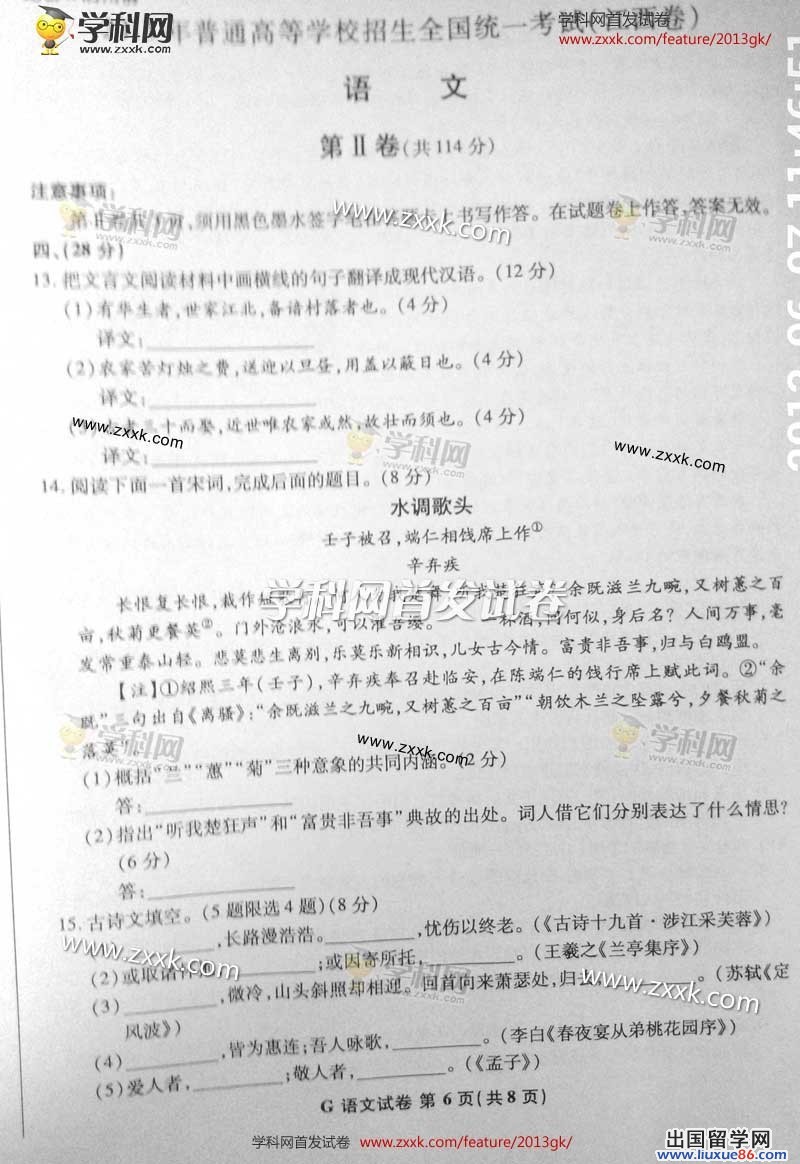 学科网
zxxk.com
年普通高等学校招生全国统一考试(
卷)
学科网首发试卷
www.zxxk.com/feature/2013gk/
语 文
第Ⅱ卷(共114分)
注意事项:
第Ⅱ卷共 页,须用黑色墨水签字笔在答题卡上书写作答。在试题卷上作答,答案无效。
www.zxxk.com
学科网
zxxk.com
四、(28分)
13. 把文言文阅读材料中画横线的句子翻译成现代汉语。(12分)
(1)有华生者,世家江北,备谙村落者也。(4分)
译文:
(2)农家苦灯烛之费,送迎以旦昼,用盖以蔽日也。(4分)
译文:
三十而娶,近世唯农家或然,故壮而须也。(4分)
www.zxxk.com
学科网
zxxk.com
www.zxxk.com
译文:
14. 阅读下面一首宋词,完成后面的题目。(8分)
水调歌头
壬子被召,端仁相饯席上作①
辛弃疾
长恨复长恨,裁作短
余既滋兰九畹,又树蕙之百
学科网首发试卷
亩,秋菊更餐英②。门外沧浪水,可以濯吾缨。 一杯酒,问何似,身后名?人间万事,毫
发常重泰山轻。悲莫悲生离别,乐莫乐新相识,儿女古今情。富贵非吾事,归与白鸥盟。
【注】①绍熙三年(壬子),辛弃疾奉召赴临安,在陈端仁的饯行席上赋此词。②“余
既”三句出自《离骚》:“余既滋兰之九畹,又树蕙之百亩”“朝饮木兰之坠露兮,夕餐秋菊之
落英”
学科网
zxxk.com
www.zxxk.com
学科网
zxxk.com
(1)概括“兰”“蕙”“菊”三种意象的共同内涵。(2分)
答:
(2)指出“听我楚狂声”和“富贵非吾事”典故的出处。词人借它们分别表达了什么情思?
(6分)
答:
15. 古诗文填空。(5题限选4题)(8分)
,长路漫浩浩。 ,忧伤以终老。(《古诗十九首·涉江采芙蓉》)
www.zxxk.com
(2)或取诸 ;或因寄所托, 。(王羲之《兰亭集序》)
学科网
zxxk.com
(3) ,微冷,山头斜照却相迎。回首向来萧瑟处,归 。(苏轼《定
www.zxxk.com
风波》)
(4) ,皆为惠连;吾人咏歌, 。(李白《春夜宴从弟桃花园序》)
(5)爱人者, ;敬人者, 。(《孟子》)
G 语文试卷 第6页(共8页)
学科网首发试卷 www.zxxk.com/feature/2013gk/
出国留学网
www.liuxue86.com